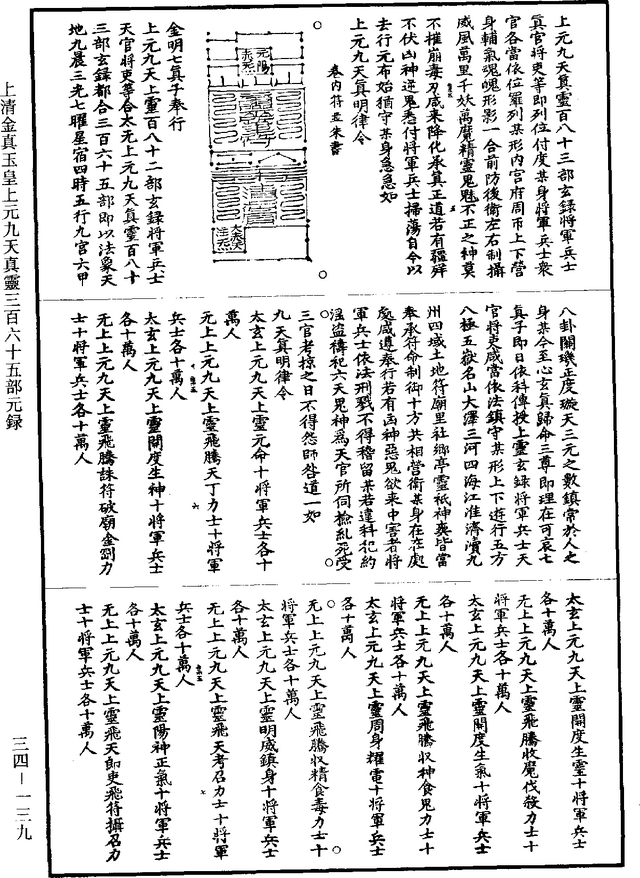 上元九天真靈百八十三部玄錄將軍兵士
真官將吏等即列位付度某身將軍兵士衆
官各當依位羅列某形内宮府周帀上下營
身輔氣魂魄形影一合前防後衛左右制攝
威風萬里千妖萬魔精靈鬼魅不正之神莫
不摧崩毒刃咸來降化承真正道若有彊舛
不伏凶神逆鬼悉付將軍兵士掃蕩自今以
去行元布始猶守某身急急如
上元九天真明律令
卷内符並朱書
金明七真子奉行
上元九天上靈百八十二部玄錄將軍兵士
天官將吏等合太无上元九天真靈百八十
三部玄錄都合三百六十五部即以法象天
地九晨三光七曜星宿四時五行九宮六甲
八卦關機正度璇天三元之數鎮常於人之
身某今至心玄真歸命三尊即理在可哀七
真子即日依科傳授上靈玄錄將軍兵士天
官將吏咸當依法鎮守某形上下遊行五方
八極五嶽名山大澤三河四海江淮濟瀆九
州四域土地符廟里社鄉亭靈祇神奭皆當
奉承符命制御十方共相營衛某身在在處
處咸遵奉行若有凶神惡鬼欲來中害者將
軍兵士依法刑戮不得稽留某若違科犯約
淫盜禱祀六天鬼神爲天官所伺撿亂死受
三官考掠之日不得怨師咎道一如
九天真明律令
太玄上元九天上靈元命十將軍兵士各十
萬人
元上上元九天上靈飛騰天丁力士十將軍
兵士各十萬人
太玄上元九天上靈開度生神十將軍兵士
各十萬人
元上上元九天上靈飛騰誅符破廟金剛力
士十將軍兵士各十萬人
太玄上元九天上靈開度生靈十將軍兵士
各十萬人
无上上元九天上靈飛騰收魔伐殺力士十
將軍兵士各十萬人
太玄上元九天上靈開度生氣十將軍兵士
各十萬人
无上上元九天上靈飛騰收神食鬼力士十
將軍兵士各十萬人
太玄上元九天上靈周身耀電十將軍兵士
各十萬人
无上上元九天上靈飛騰收精食毒力士十
將軍兵士各十萬人
太玄上元九天上靈明威鎮身十將軍兵士
各十萬人
无上上元九天上靈飛天考召力士十將軍
兵士各十萬人
太玄上元九天上靈陽神正氣十將軍兵士
各十萬人
无上上元九天上靈飛天即吏飛符攝召力
士十將軍兵士各十萬人
上清金真玉皇上元九天真靈三百六十五部元録
三四—一三九